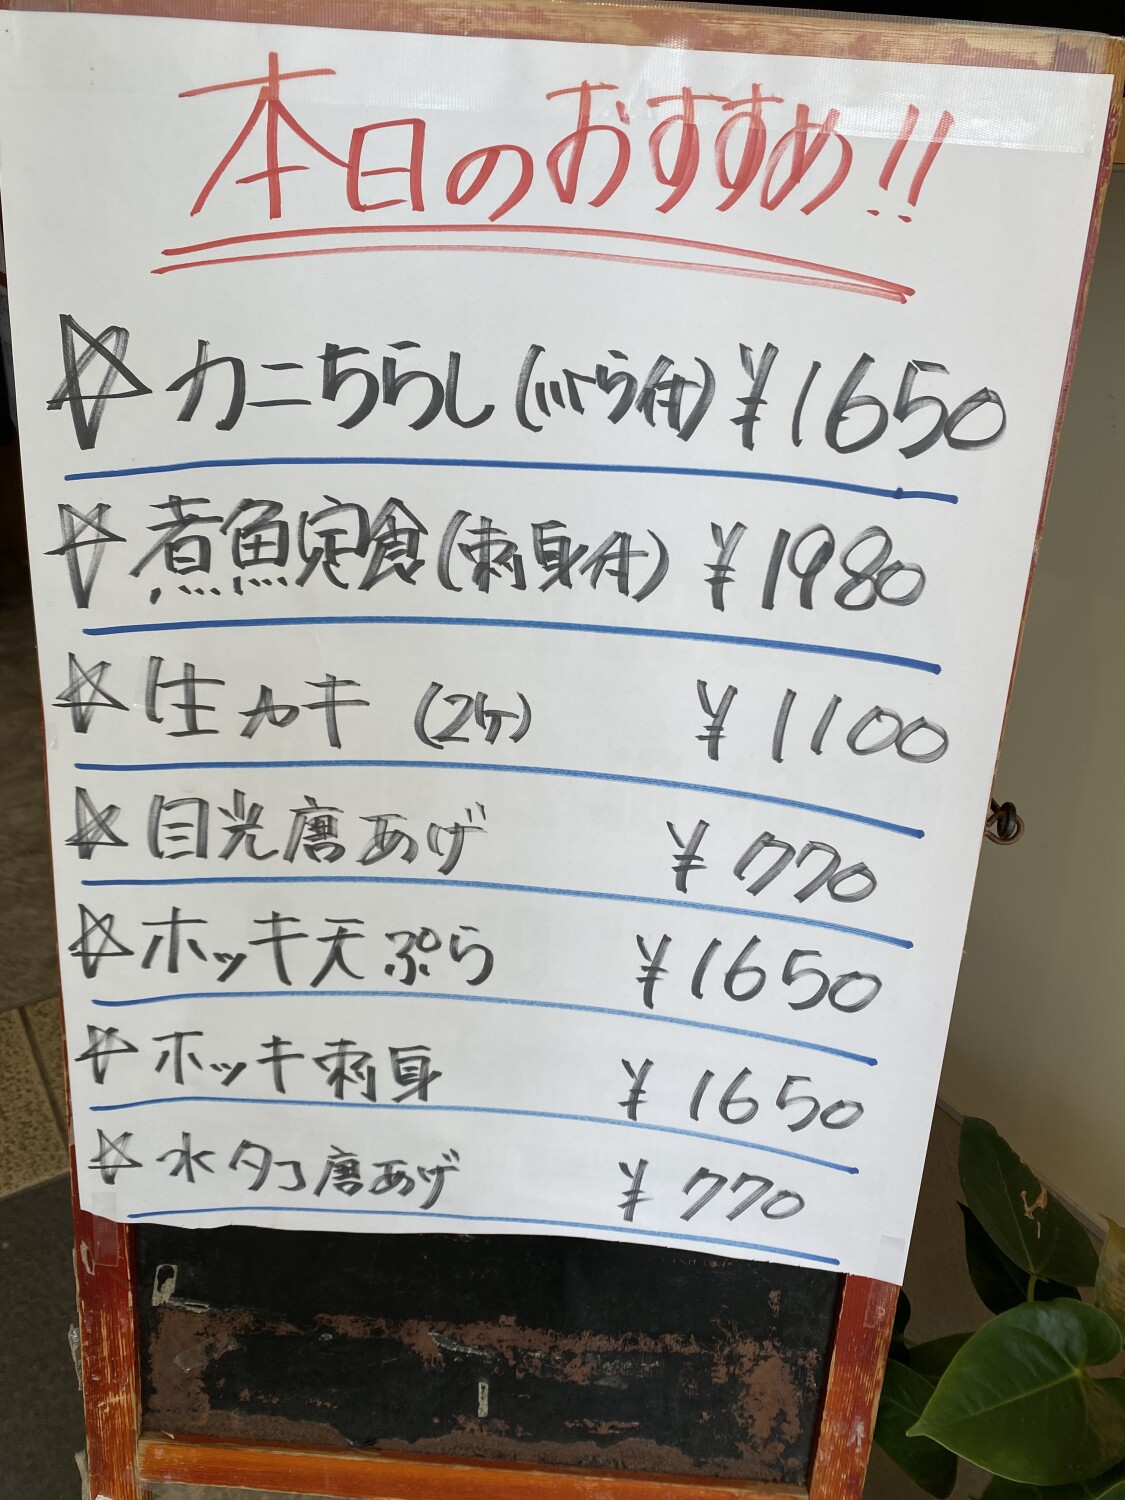 本日のおすすめ!!
☆カニちらし(いくら付) ¥1650
☆煮魚定食(刺身付) ¥1980
☆生カキ (2ケ) ¥1100
☆目光唐あげ ¥770
☆ホッキ天ぷら ¥1650
☆ホッキ刺身 ¥1650
☆水タコ唐あげ ¥770